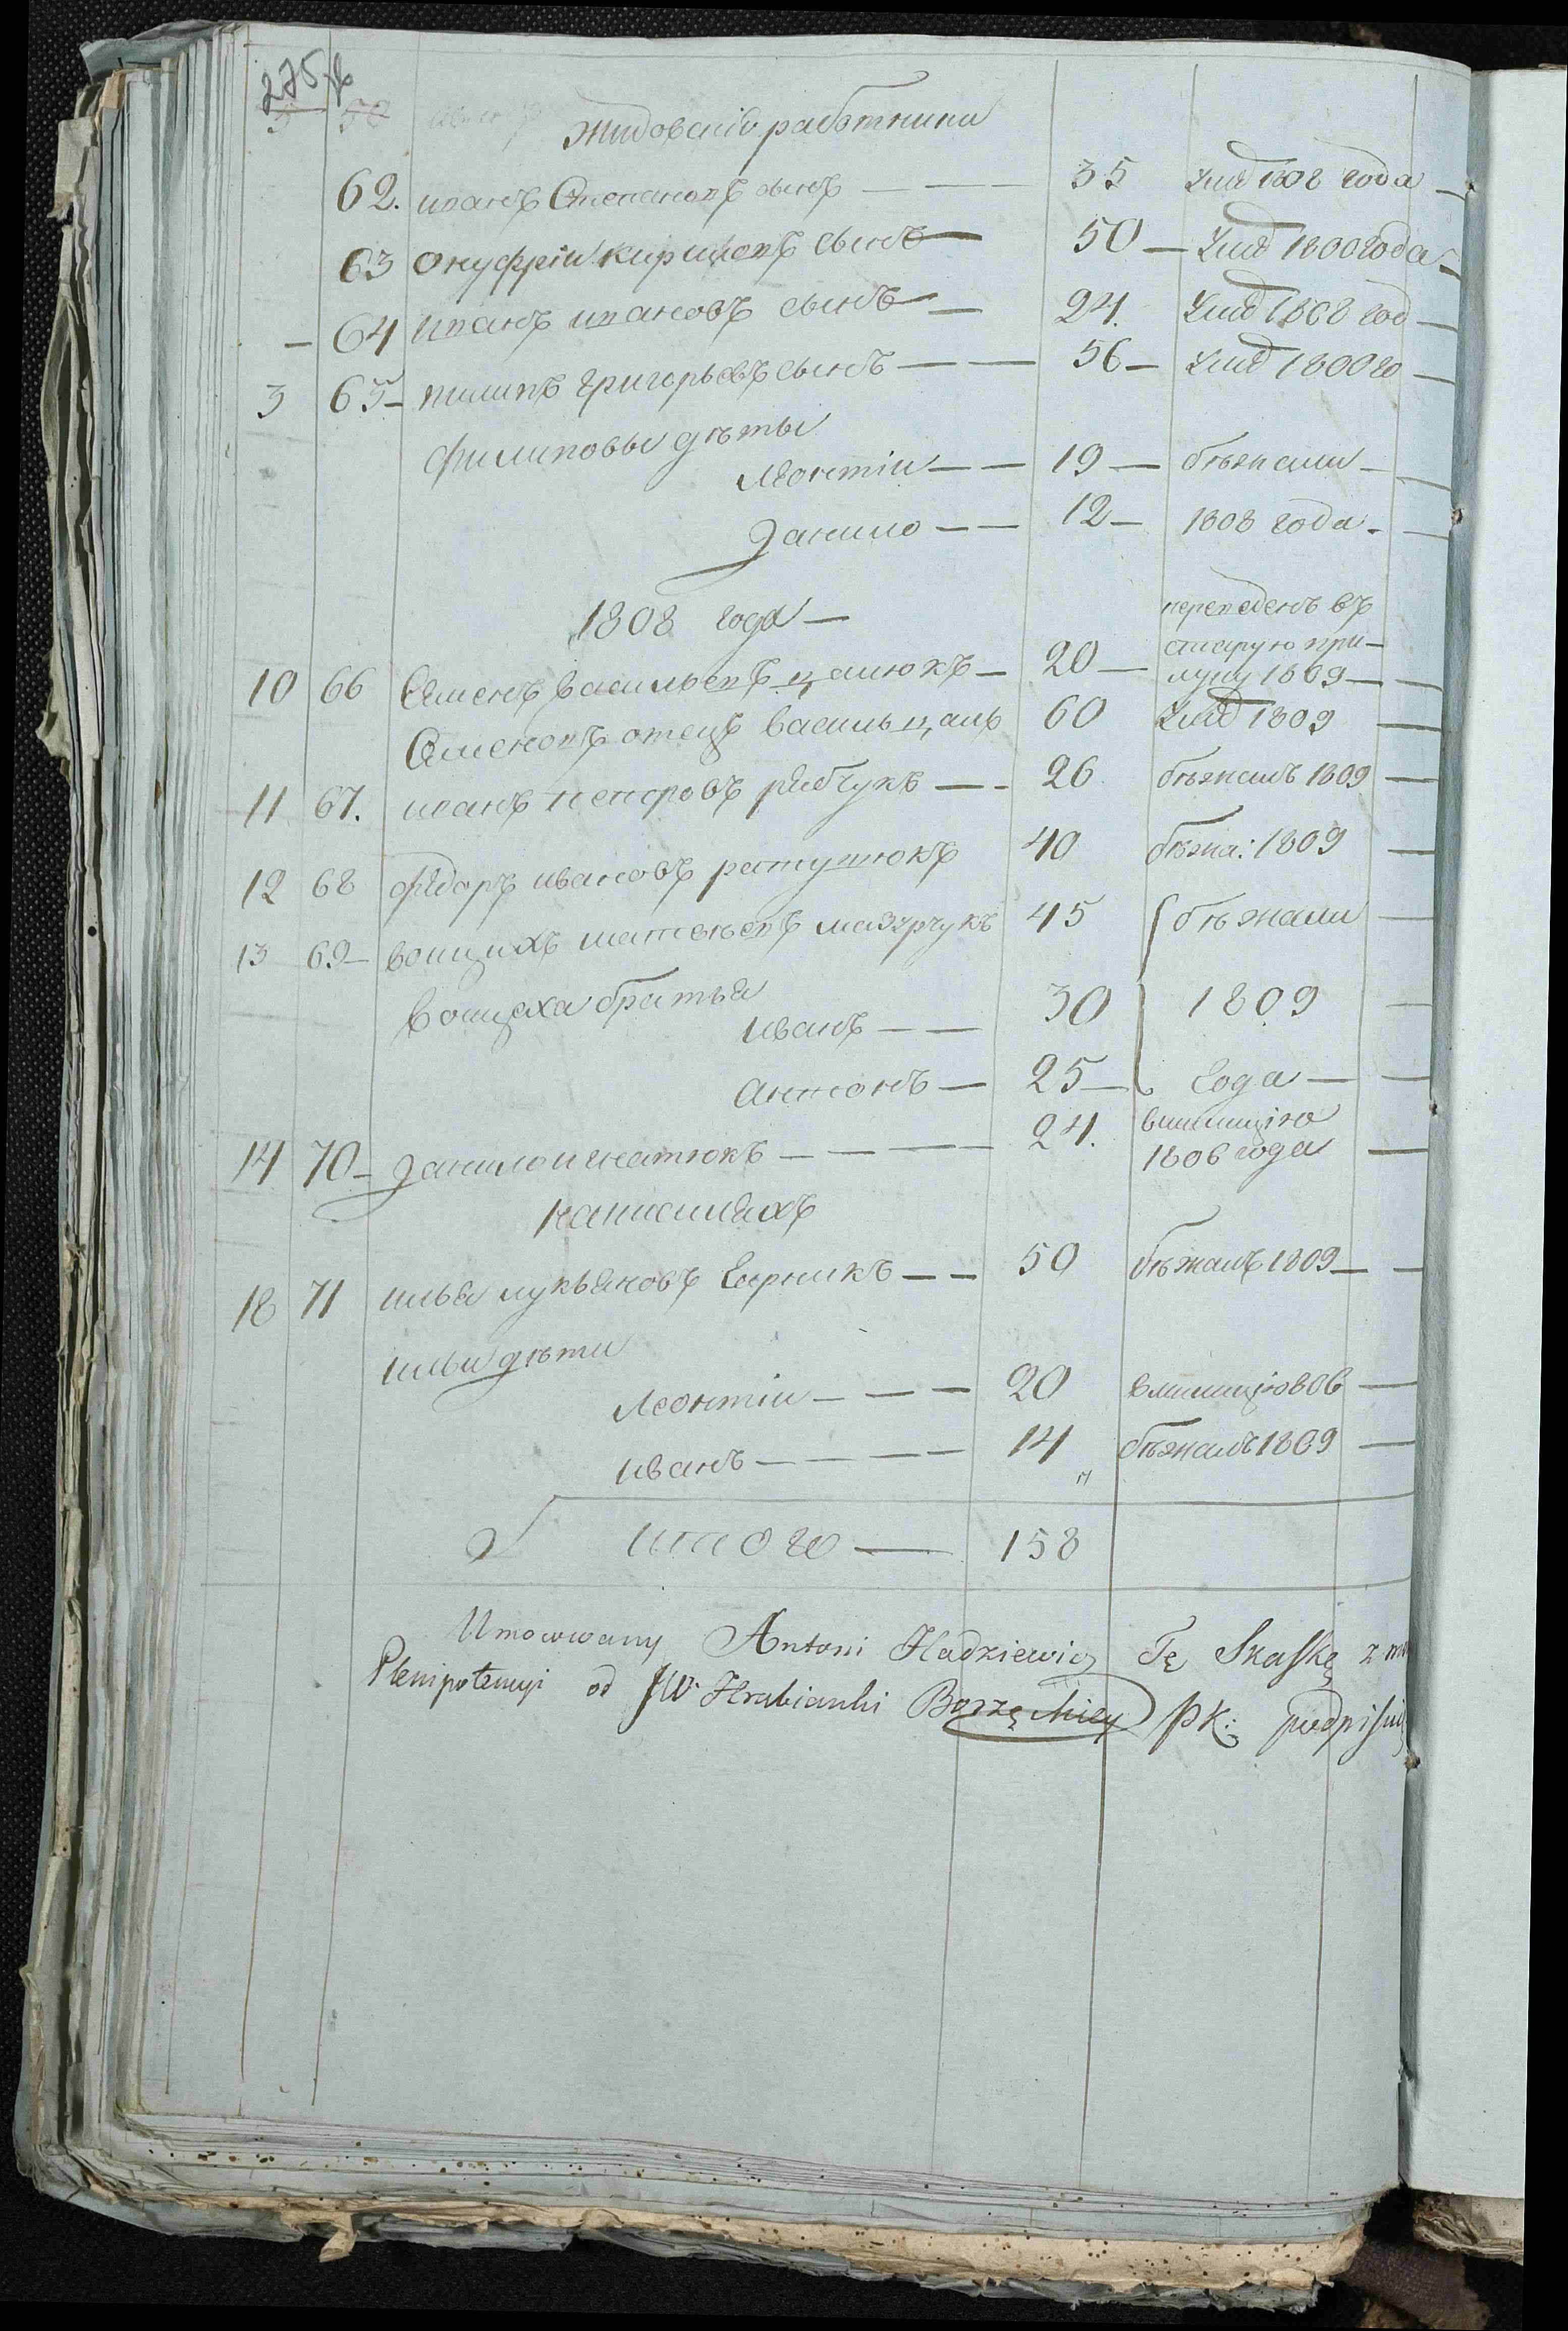 275 б
Жидовскіе работники
62. иванъ Степановъ сынъ — — — 35 умеръ 1808 года —
63 онуфріи кириловъ сынъ — 50 — умеръ 1800 года —
— 64 иванъ ивановъ сынъ — 24. умеръ 1808 год —
3 65 — пилипъ григорьевъ сынъ — — 56 — умеръ 1800 го —
филиповы дѣты
леонтіи — — 19 — бѣжали —
данило — — 12 — 1808 года —
1808 года —
10 66 Семенъ васильевъ цалюкъ — 20 — переведенъ въ
старую при-
луку 1809 —
Семеновъ отецъ василь цаль 60 умеръ 1809 —
11 67. иванъ петровъ рябчукъ — - 26 бѣжалъ 1809 —
12 68 фёдоръ ивановъ ратушнюкъ 40 бѣжа: 1809 —
13 69 — воицихъ матвѣевъ мазурчукъ 45 бѣжали —
воицеха братья
иванъ — — 30 1809 —
антонъ — 25 — года — —
14 70 — данило игнатюкъ — — — — 24. вмилицію
1806 года —
18 71 илья лукьяновъ Гирникъ — — 50 бѣжалъ 1809 — —
ильи дѣти
леонтіи — — — 20 вмилицію 806 —
иванъ — — — — 14 бѣжалъ 1809 —
итого — 158
Umocowany Antoni Hadziewicz Tę Skaskę z
Plenipotencyi od JW. Hrabianki Borzęckiey PK: podpisuię